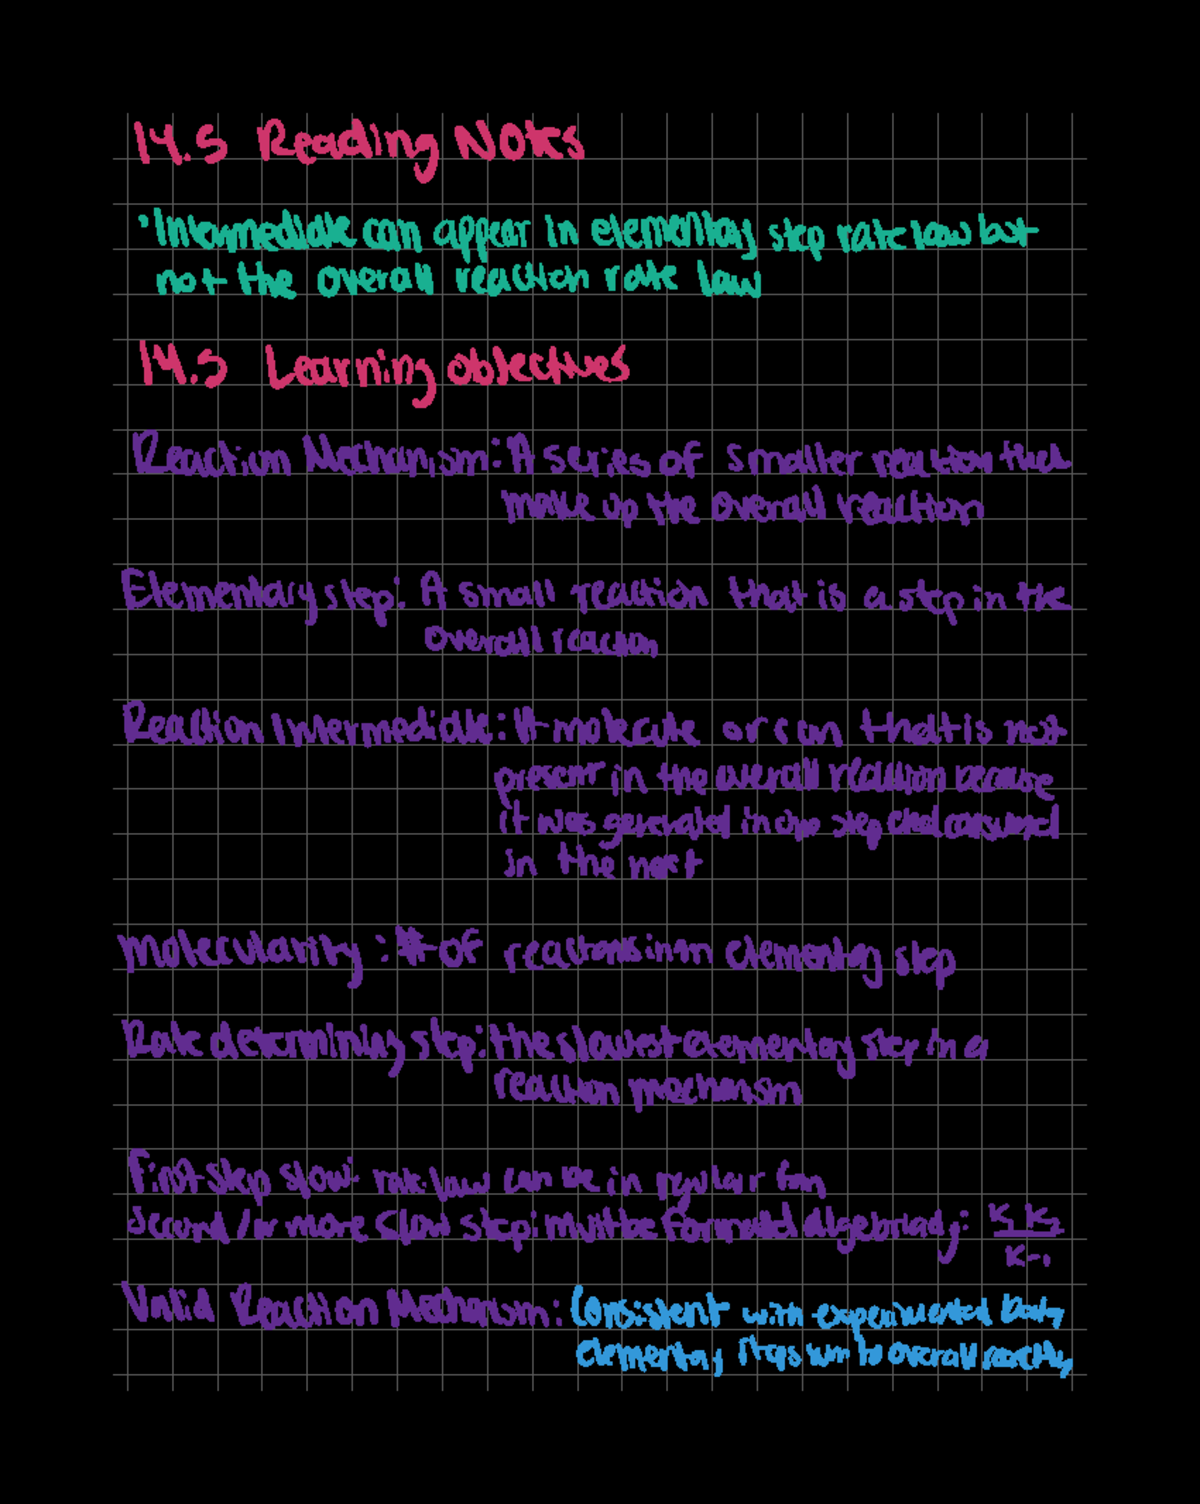 14.5 Reading Notes
• Intermediate can appear in elementary step rate law but
not the overall reaction rate law
14.5 Learning objectives
Reaction Mechanism: A series of smaller reaction that
make up the overall reaction
Elementary step: A small reaction that is a step in the
overall reaction
Reaction Intermediate: A molecule or ion that is not
present in the overall reaction because
it was generated in one step and consumed
in the next
Molecularity: # of reactants in an elementary step
Rate determining step: the slowest elementary step in a
reaction mechanism
First step slow: rate law can be in regular
Second / or more slow step: must be formatted algebraically: K₁K₂
K₋₁
Valid Reaction Mechanism: Consistent with experimental Data,
elementary steps sum to overall